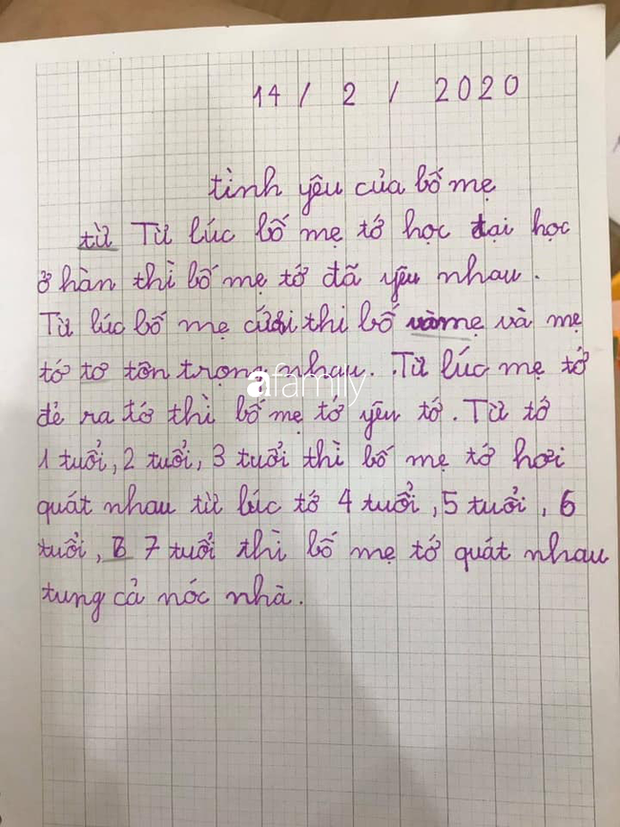 14 / 2 / 2020
tình yêu của bố mẹ
từ Từ lúc bố mẹ tớ học đại học
ở hàn thì bố mẹ tớ đã yêu nhau.
Từ lúc bố mẹ cưới thì bố vàmẹ và mẹ
tớ tơ tôn trọng nhau. Từ lúc mẹ tớ
đẻ ra tớ thì bố mẹ tớ yêu tớ. Từ tớ
1 tuổi, 2 tuổi, 3 tuổi thì bố mẹ tớ hơi
quát nhau từ lúc tớ 4 tuổi, 5 tuổi, 6
tuổi, 6 7 tuổi thì bố mẹ tớ quát nhau
tung cả nóc nhà.
afamily